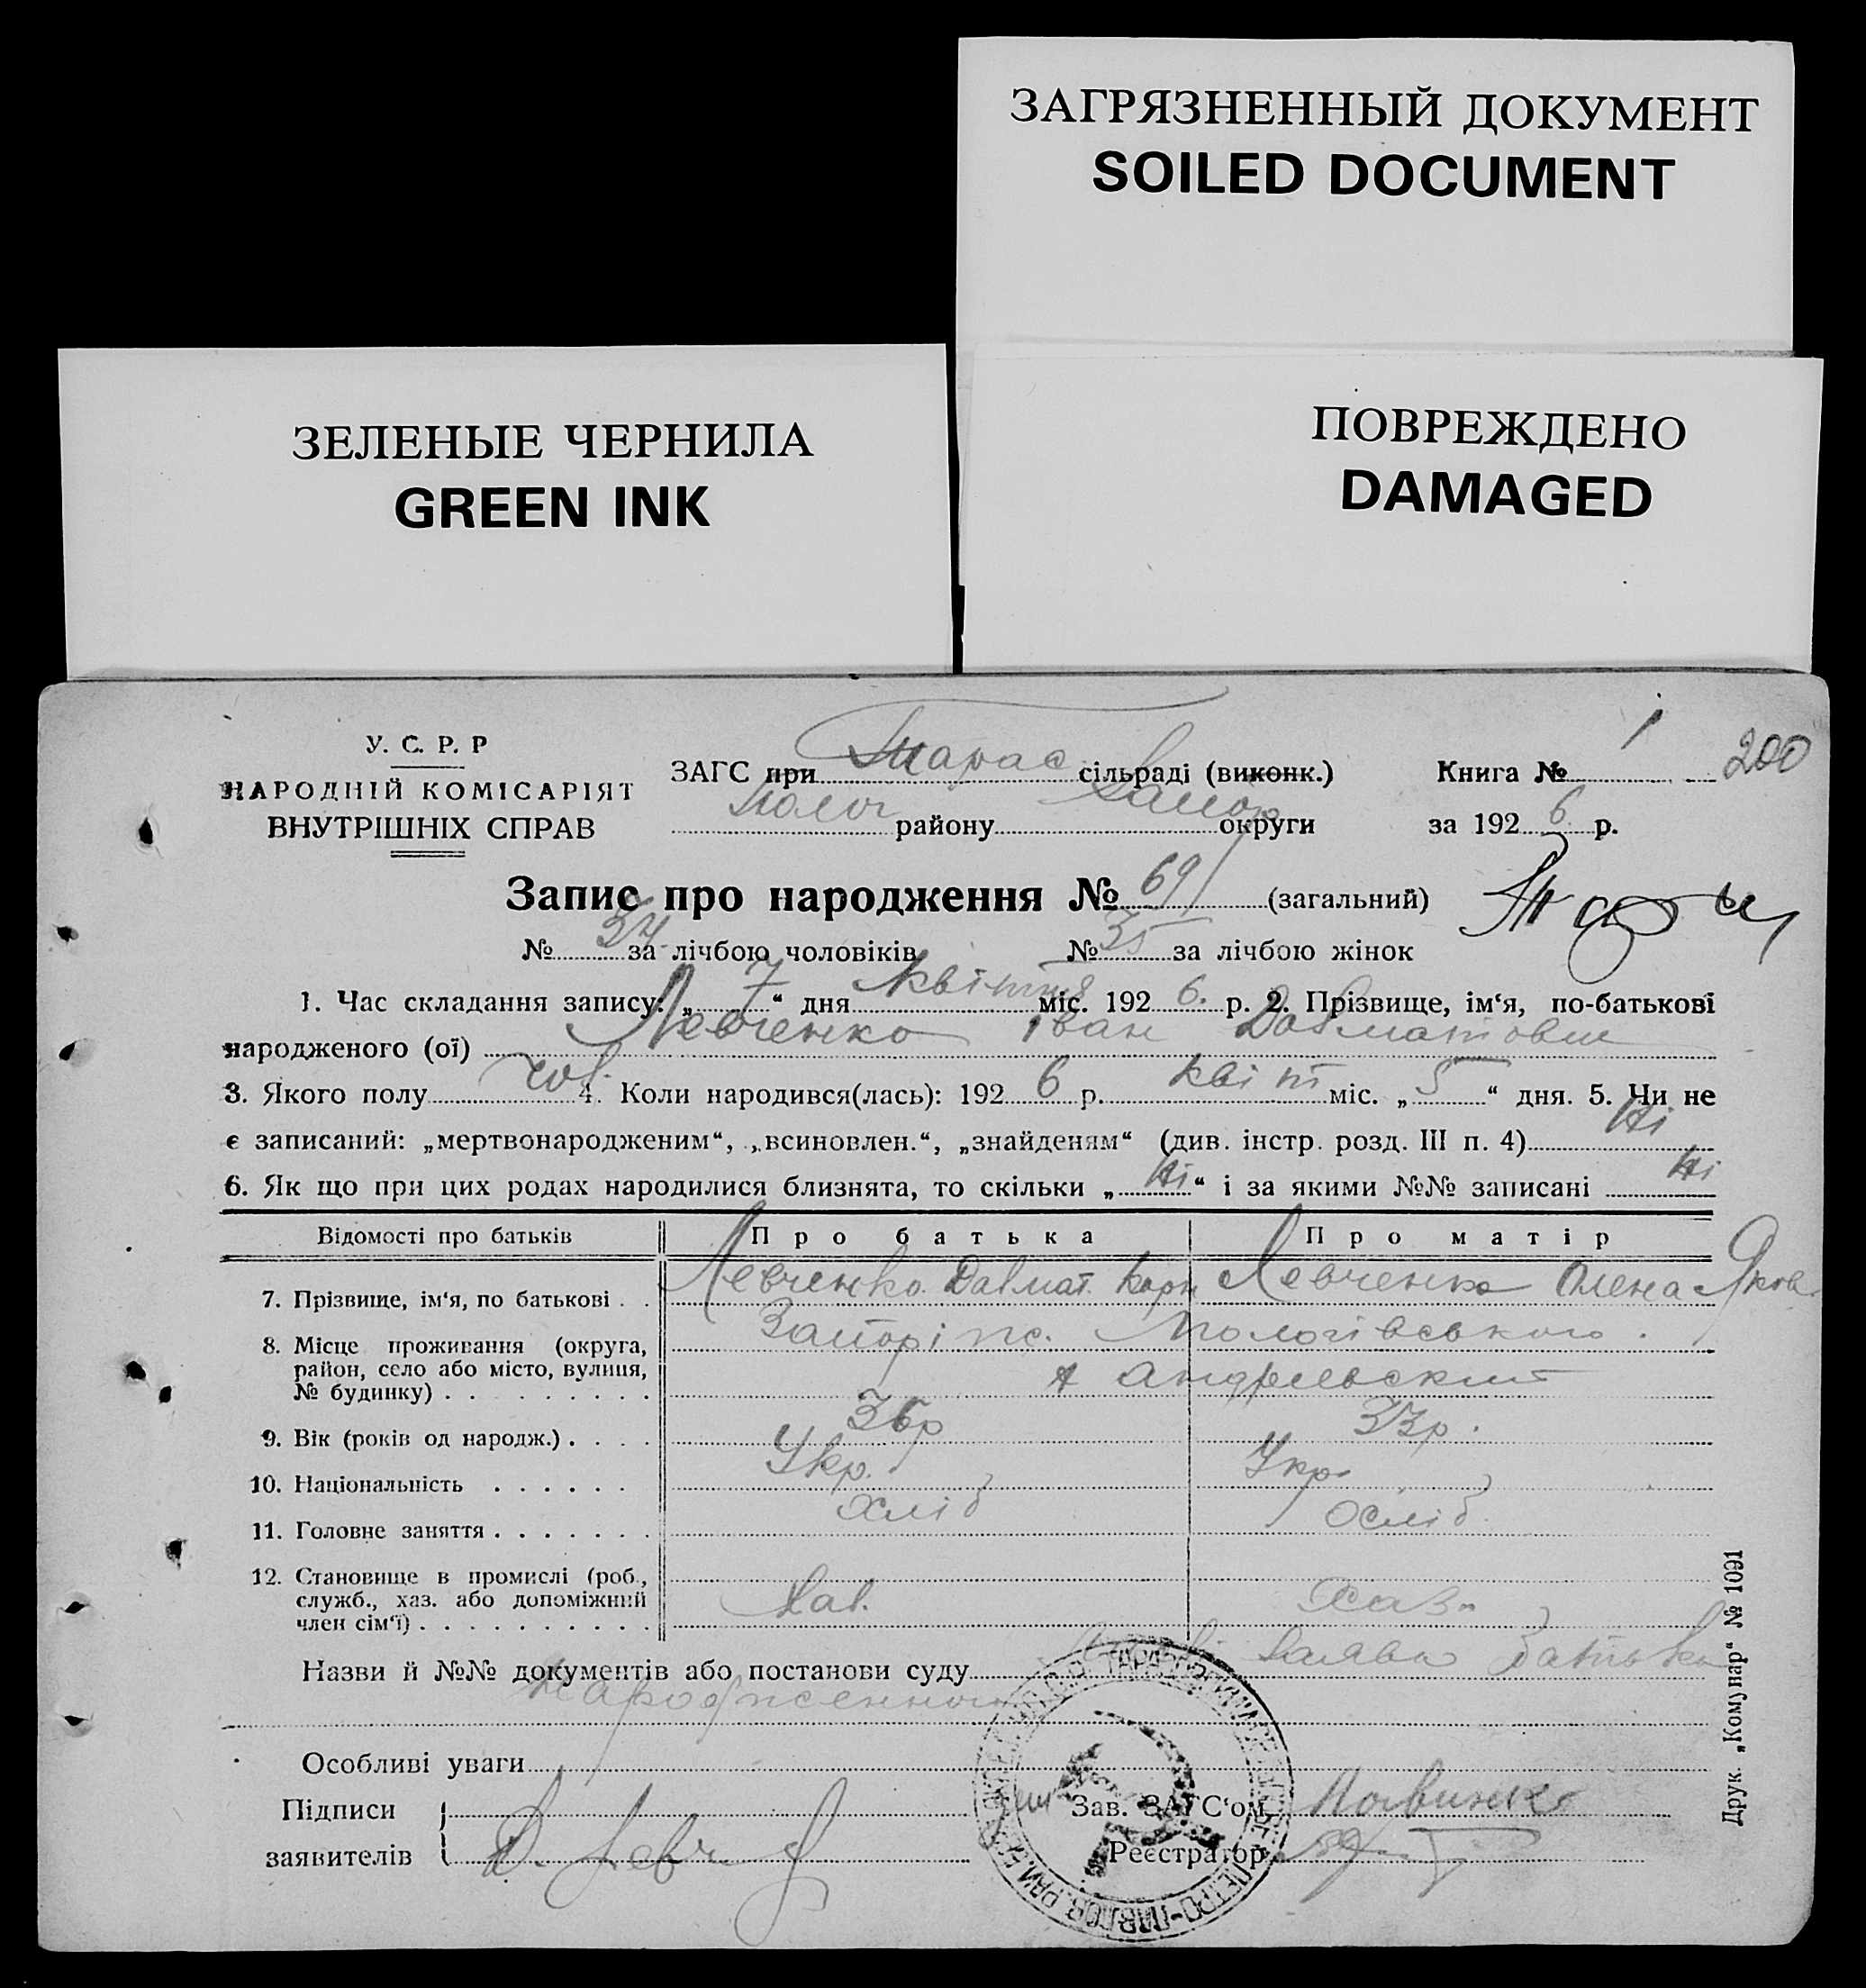 ЗАГРЯЗНЕННЫЙ ДОКУМЕНТ
SOILED DOCUMENT
ЗЕЛЕНЫЕ ЧЕРНИЛА
GREEN INK
ПОВРЕЖДЕНО
DAMAGED
У. С. Р. Р
НАРОДНІЙ КОМІСАРІЯТ
ВНУТРІШНІХ СПРАВ
ЗАГС при Тарас сільраді (виконк.)
Полог району Запор округи
Книга № 1 200
за 192 6 р.
Запис про народження № 69 (загальний)
№ 34 за лічбою чоловіків № 35 за лічбою жінок
1. Час складання запису: „ 7 “ дня квітня міс. 192 6. р. 2. Прізвище, ім‘я, по-батькові
народженого (ої) Левченко Іван Далматович
3. Якого полу чол. 4. Коли народився(лась): 192 6 р. квіт міс. „ 5 “ дня. 5. Чи не
є записаний: „мертвонародженим“, „всиновлен.“, „знайденям“ (див. інстр. розд. III п. 4) Ні
6. Як що при цих родах народилися близнята, то скільки „ Ні “ і за якими №№ записані Ні
Відомості про батьків Про батька Про матір
7. Прізвище, ім‘я, по батькові . . Левченко Далмат. Корн Левченко Олена Яков.
8. Місце проживання (округа, район, село або місто, вулиця, № будинку) . . . . . . . . . Запоріж. Пологівського.
9. Вік (років од народж.) . . . . 36р 33р.
10. Національність . . . . . . Укр. Укр.
11. Головне заняття . . . . . . . Хліб Хліб
12. Становище в промислі (роб., служб., хаз. або допоміжний член сім‘ї) . . . . . . . . . . Хаз. Хаз.
Назви й №№ документів або постанови суду заява батька
народження
Особливі уваги
Підписи
заявителів Д. Левч
Зав. ЗАГС‘ом
Реєстратор
Друк. „Комунар“ № 1091